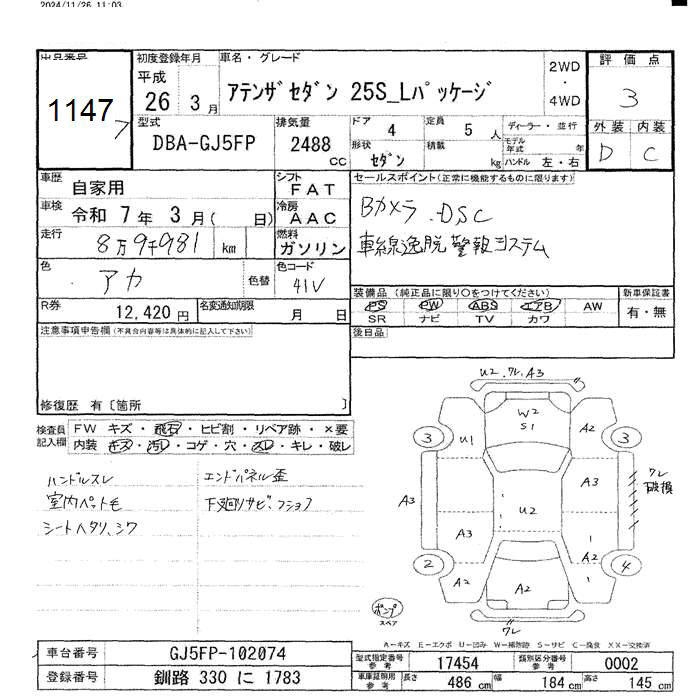 2024/11/26 11:03
出品番号
1147
初度登録年月
平成
26 3月
車名・グレード
アテンザセダン 25S_Lパッケージ
2WD
・
4WD
評価点
3
型式
DBA-GJ5FP
排気量
2488
CC
ドア 4
定員 5 人
ディーラー・並行
モデル年式 年
形状 セダン
積載 kg
ハンドル 左・右
外装 内装
D C
車歴 自家用
シフト FAT
車検 令和 7年 3月( 日)
冷房 AAC
走行 8万9千981 km
燃料 ガソリン
色 アカ
色替
色コード 41V
R券 12,420円
名変通知期限 月 日
セールスポイント(正常に機能するものに限ります)
Bカメラ.DSC
車線逸脱警報システム
装備品(純正品に限り○をつけてください)
PS PW ABS エアB AW
SR ナビ TV カワ
新車保証書
有・無
後日品
注意事項申告欄(不具合内容等は具体的に記入して下さい)
修復歴 有〔箇所 〕
検査員記入欄
FW キズ・飛石・ヒビ割・リペア跡・×要
内装 キズ・汚レ・コゲ・穴・スレ・キレ・破レ
ハンドルスレ
室内ペット毛
シートヘタリ、シワ
エンドパネル歪
下廻りサビ、フショク
U2.ワレ,A3
W2
S1
3 U1 A2 3
A3 A3
ワレ
破損
U2
A3 A2
2 A2 A2 4
ワレ
ポンプ
スペア
A-キズ E-エクボ U-凹み W-補修跡 S-サビ C-腐食 XX-交換済
車台番号 GJ5FP-102074
登録番号 釧路 330 に 1783
型式指定番号参考 17454
類別区分番号参考 0002
車庫証明用参考 長さ 486 cm 幅 184 cm 高さ 145 cm